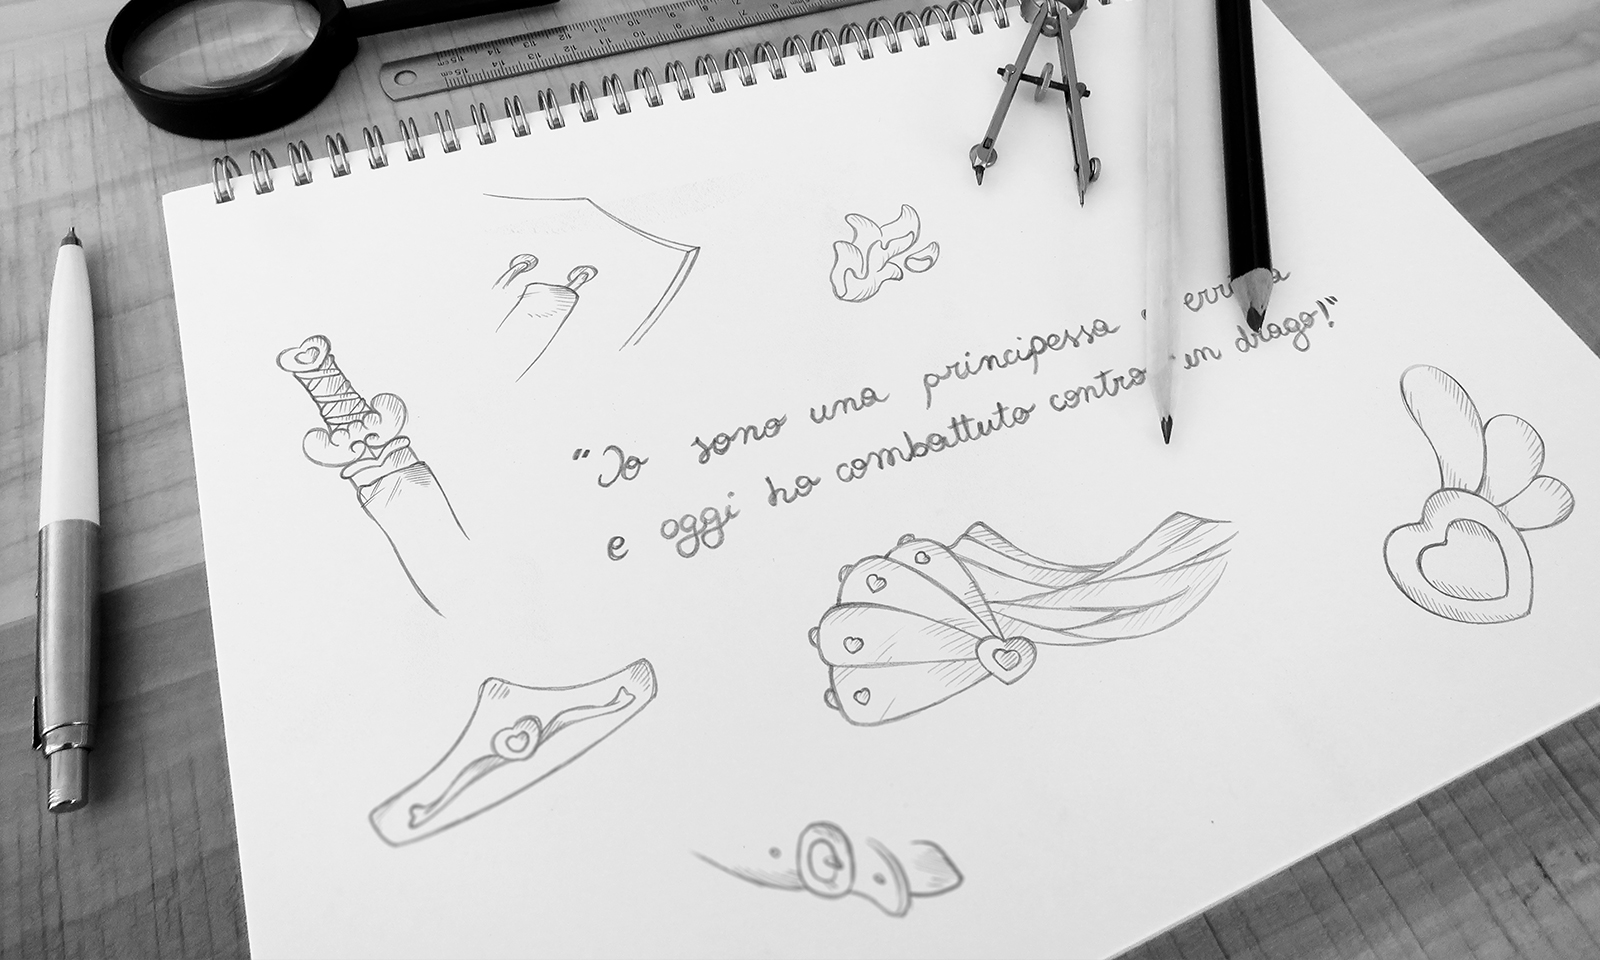 "Io sono una principessa
e oggi ho combattuto contro un drago!"